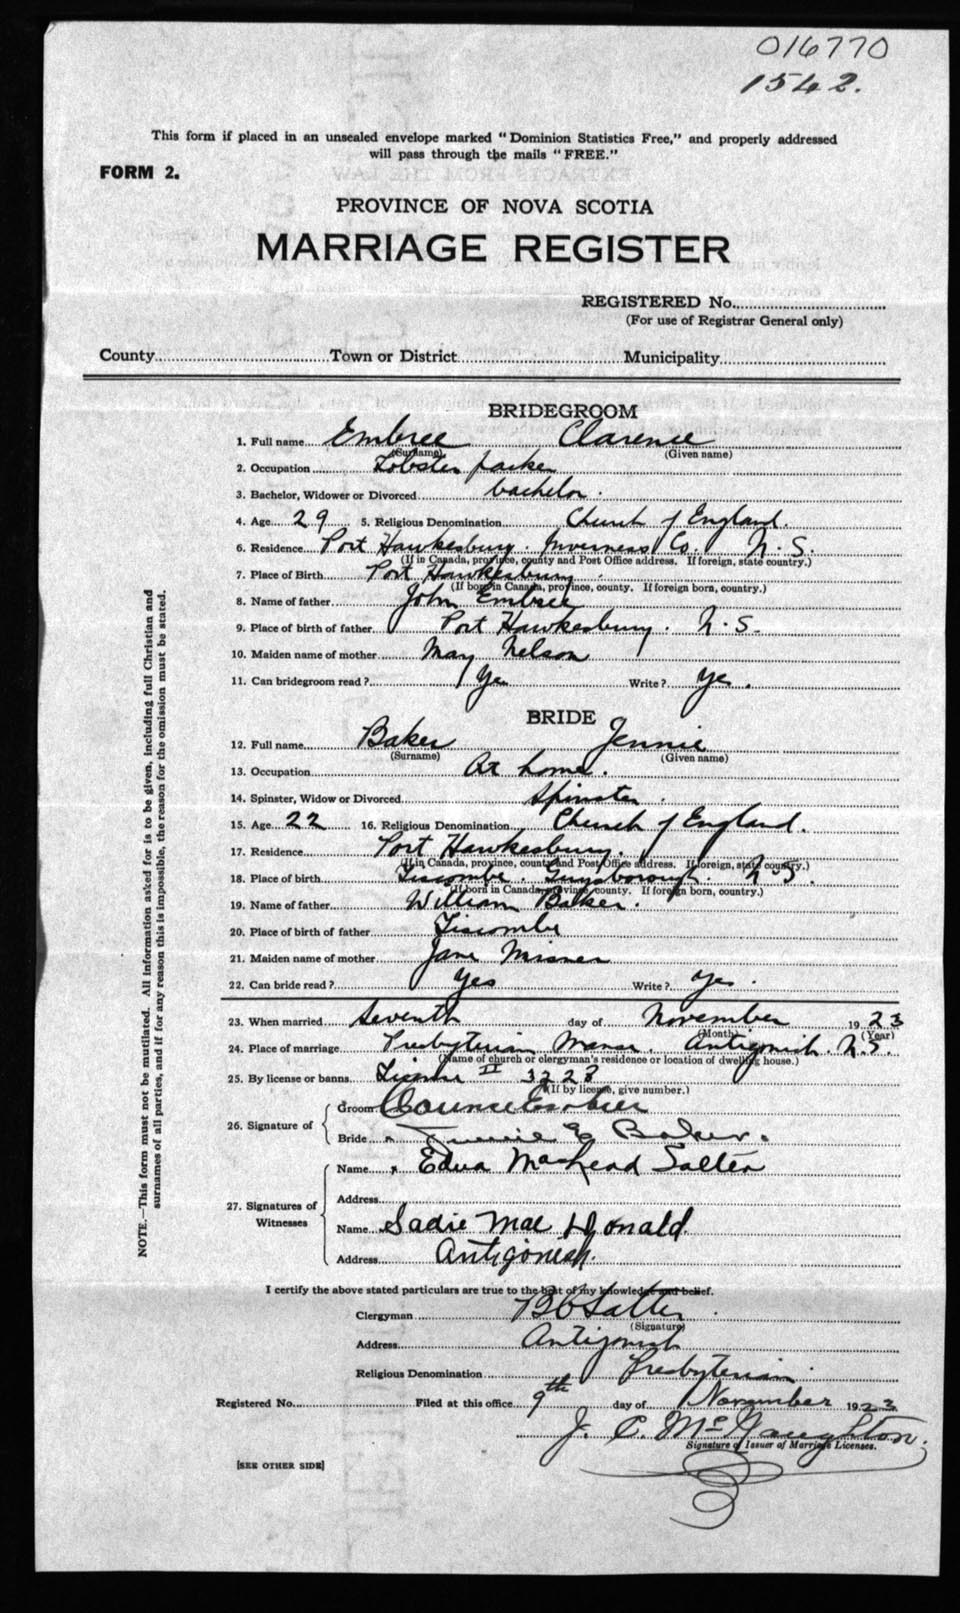 016770
1542.
This form if placed in an unsealed envelope marked "Dominion Statistics Free," and properly addressed
will pass through the mails "FREE."
FORM 2.
PROVINCE OF NOVA SCOTIA
MARRIAGE REGISTER
REGISTERED No.
(For use of Registrar General only)
County Town or District Municipality
BRIDEGROOM
1. Full name Embree Clarence
(Surname) (Given name)
2. Occupation Lobster packer
3. Bachelor, Widower or Divorced bachelor.
4. Age 29 5. Religious Denomination Church of England.
6. Residence Port Hawkesbury. Inverness Co. N.S.
(If in Canada, province, county and Post Office address. If foreign, state country.)
7. Place of Birth Port Hawkesbury.
(If born in Canada, province, county. If foreign born, country.)
8. Name of father John Embree
9. Place of birth of father Port Hawkesbury. N.S.
10. Maiden name of mother May Nelson
11. Can bridegroom read? Yes Write? Yes.
BRIDE
12. Full name Baker Jennie
(Surname) (Given name)
13. Occupation At home.
14. Spinster, Widow or Divorced Spinster.
15. Age 22 16. Religious Denomination Church of England.
17. Residence Port Hawkesbury.
(If in Canada, province, county and Post Office address. If foreign, state country.)
18. Place of birth Liscombe. Guysborough. N.S.
(If born in Canada, province, county. If foreign born, country.)
19. Name of father William Baker.
20. Place of birth of father Liscombe
21. Maiden name of mother Jane Misner
22. Can bride read? Yes Write? Yes.
23. When married Seventh day of November 1923
(Month) (Year)
24. Place of marriage Presbyterian Manse. Antigonish. N.S.
(Name of church or clergyman's residence or location of dwelling house.)
25. By license or banns License II 3228
(If by license, give number.)
26. Signature of
Groom Clarence Embree
Bride x Jennie E Baker.
27. Signatures of Witnesses
Name x Edna MacLead Salter
Address
Name Sadie MacDonald
Address Antigonish.
I certify the above stated particulars are true to the best of my knowledge and belief.
Clergyman Salter
(Signature)
Address Antigonish
Religious Denomination Presbyterian.
Registered No. Filed at this office 9th day of November 1923
J. C. McNaughton.
Signature of Issuer of Marriage Licenses.
[SEE OTHER SIDE]
NOTE.—This form must not be mutilated. All information asked for is to be given, including full Christian and
surnames of all parties, and if for any reason this is impossible, the reason for the omission must be stated.